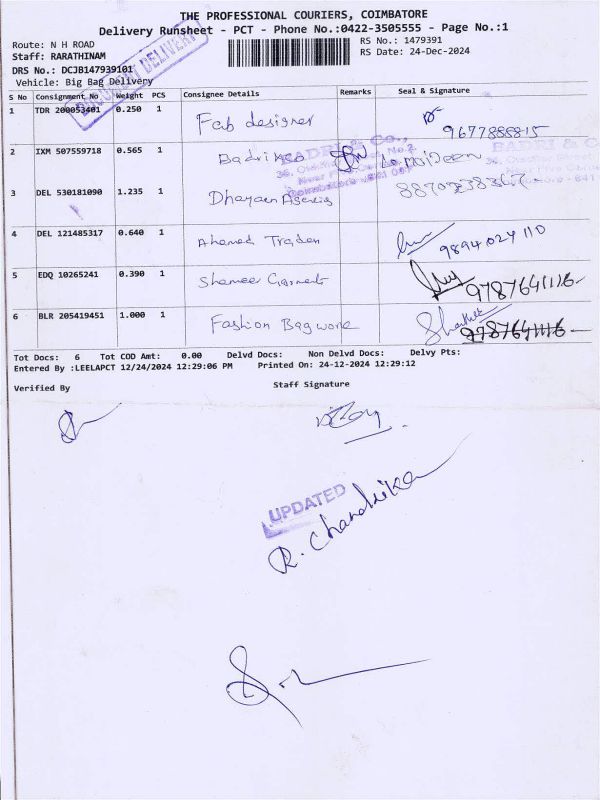 THE PROFESSIONAL COURIERS, COIMBATORE
Delivery Runsheet - PCT - Phone No.:0422-3505555 - Page No.:1
Route: N H ROAD
RS No.: 1479391
Staff: RARATHINAM
RS Date: 24-Dec-2024
DRS No.: DCJB147939101
Vehicle: Big Bag Delivery
DOCUMENT DELIVERY
S No Consignment No Weight PCS Consignee Details Remarks Seal & Signature
1 TDR 200053401 0.250 1 Fab designer 9677888815
2 IXM 507559718 0.565 1 Badri &co
BADRI & Co.,
3 DEL 530181090 1.235 1 Dhayan 8870738367
4 DEL 121485317 0.640 1 Ahamed Traden 9894024110
5 EDQ 10265241 0.390 1 Shameer Garments 9787641116
6 BLR 205419451 1.000 1 Fashion Bag work 9787641116
Tot Docs: 6 Tot COD Amt: 0.00 Delvd Docs: Non Delvd Docs: Delvy Pts:
Entered By :LEELAPCT 12/24/2024 12:29:06 PM Printed On: 24-12-2024 12:29:12
Verified By Staff Signature
UPDATED
R. Chandrika